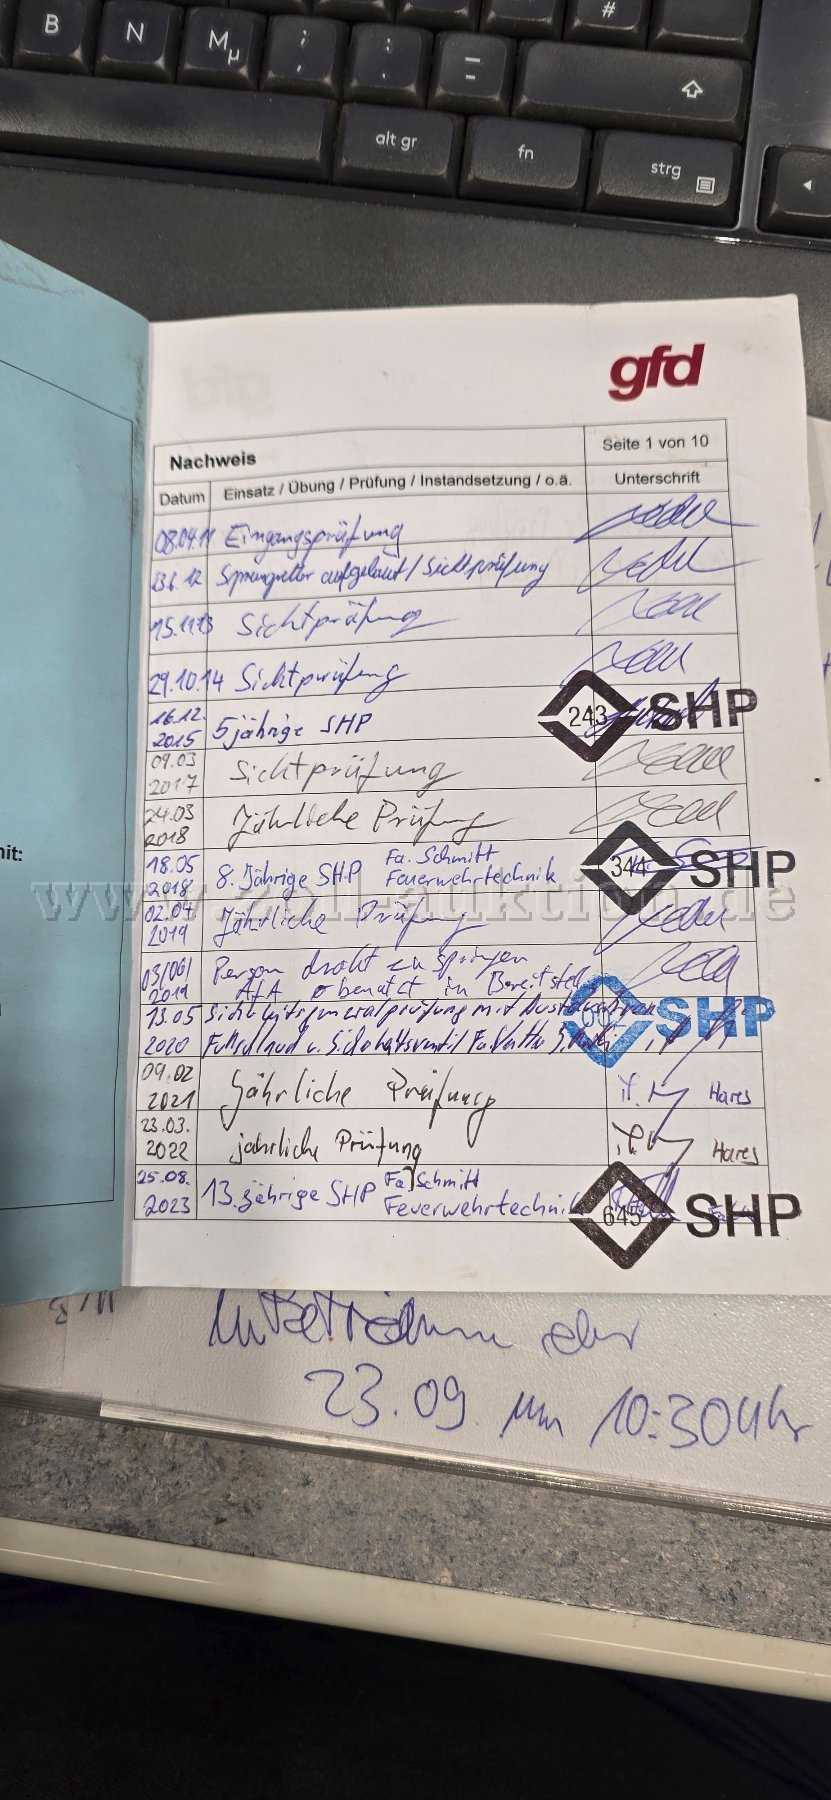 B N M µ ; , : . = - #
alt gr fn strg
gfd
Nachweis Seite 1 von 10
Datum Einsatz / Übung / Prüfung / Instandsetzung / o.ä. Unterschrift
08.04.11 Eingangsprüfung
23.6.12 Sprungretter aufgebaut / Sichtprüfung
15.11.13 Sichtprüfung
29.10.14 Sichtprüfung
16.12.2015 5jährige SHP 243 SHP
09.03 2017 Sichtprüfung
24.03 2018 Jährliche Prüfung
18.05 2018 8. Jährige SHP Fa. Schmitt Feuerwehrtechnik 344 SHP
02.04 2019 Jährliche Prüfung
03/06/2019 Person droht zu springen
in Bereitstell
13.05 2020 mit SHP
u. Sicherheitsventil
09.02 2021 Jährliche Prüfung Hares
23.03. 2022 jährliche Prüfung Hares
25.08. 2023 13. jährige SHP Fa. Schmitt Feuerwehrtechnik 645 SHP
nit:
www.zoll-auktion.de
23.09. um 10:30 Uhr